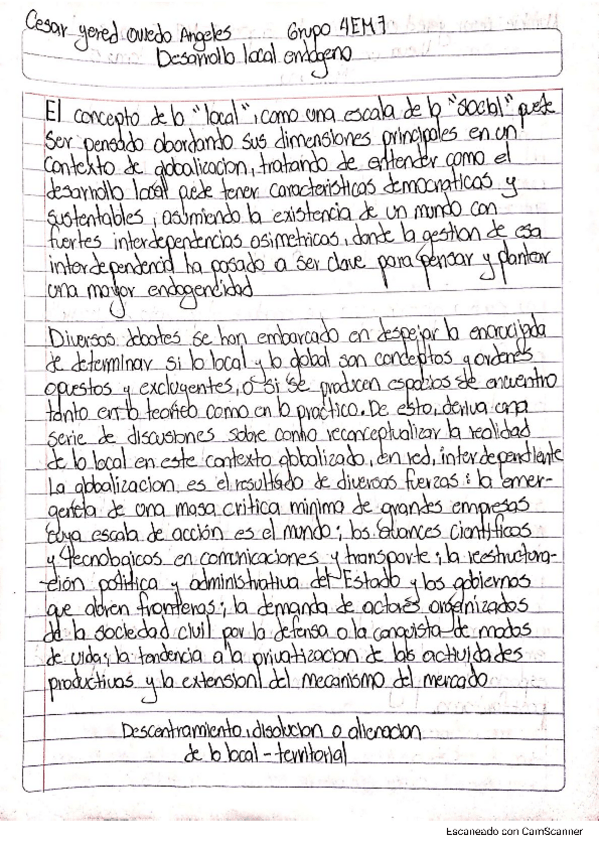 Cesar yered Oviedo Angeles Grupo 4EM7
Desarrollo local endogeno
El concepto de lo "local", como una escala de lo "social" puede
ser pensado abordando sus dimensiones principales en un
contexto de globalizacion, tratando de entender como el
desarrollo local puede tener caracteristicas democraticas y
sustentables, asumiendo la existencia de un mundo con
fuertes interdependencias asimetricas, donde la gestion de esa
interdependencia ha pasado a ser clave para pensar y plantear
una mayor endogeneidad
Diversos debates se han embarcado en despejar la encrucijada
de determinar si lo local y lo global son conceptos y ordenes
opuestos y excluyentes, o si se producen espacios de encuentro
tanto en lo teorico como en lo practico. De esto, deriva una
serie de discusiones sobre como reconceptualizar la realidad
de lo local en este contexto globalizado, en red, interdependiente
La globalizacion, es el resultado de diversas fuerzas: la emer-
gencia de una masa critica minima de grandes empresas
cuya escala de acción es el mundo; los avances cientificos
y tecnologicos en comunicaciones y transporte; la reestructura-
ción politica y administrativa del Estado y los gobiernos
que abren fronteras; la demanda de actores organizados
de la sociedad civil por la defensa o la conquista de modos
de vida; la tendencia a la privatizacion de las actividades
productivas y la extension del mecanismo del mercado
Descentramiento, disolucion o alienacion
de lo local-territorial
Escaneado con CamScanner